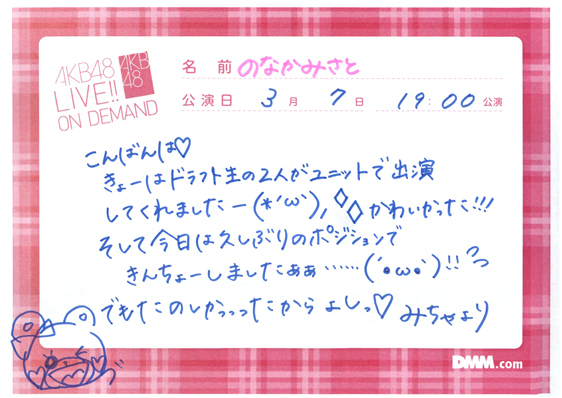 AKB48
LIVE!!
ON DEMAND
AKB
48
名前 のなかみさと
公演日 3月 7日 19:00公演
こんばんは♡
きょーはドラフト生の2人がユニットで出演
してくれましたー(*'ω'), ◇◇かわいかった!!!
そして今日は久しぶりのポジションで
きんちょーしましたぁぁ……(´•ω•`)!!
でもたのしかっったからよしっ♡ みちゃより
DMM.com